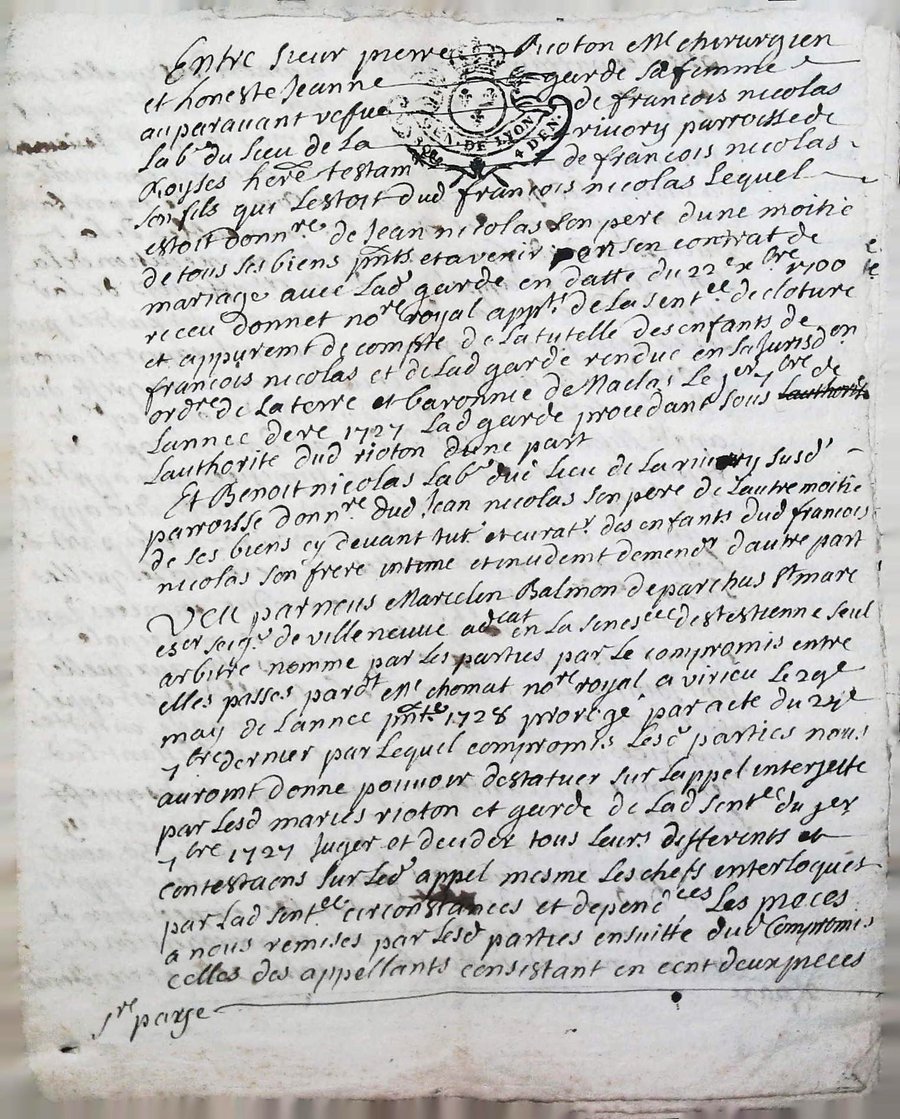 Entre sieur pierre Rioton Me chirurgien
et honeste Jeanne garde sa femme
auparavant vefue de francois nicolas
GEN. DE LYON
4 DEN.
Labr du Lieu de La rivory parroisse de
Royses here testam de francois nicolas
son fils qui Lestoit dud francois nicolas Lequel
estoit donnre de Jean nicolas son pere dune moitie
de tous ses biens pnts et avenir par son contrat de
mariage avec Lad garde en datte du 22e xbre 1700
receu donnet nore royal appt de La sentee de cloture
et appuremt de compte de La tutelle des enfants de
francois nicolas et de Lad garde rendue en La Jurisdon
ordre de La terre et baronnie de Maclas Le 1er 7bre de
Lannee dere 1727 Lad garde procedant sous Lauthorite
Lauthorite dud rioton dune part
Et Benoit nicolas Labr dud Lieu de La rivory susd
parroisse donnre dud Jean nicolas son pere de Lautre moitie
de ses biens cy devant tutr et curatr des enfants dud francois
nicolas son frere intime et incidemt demendr dautre part
Veu par nous Marcelin Balmon de parchas St marc
escr seigr de villeneuve advcat en La senesee de St estienne seul
arbitre nomme par Les parties par Le compromis entre
elles passes pardt Me chomat nore royal a virieu Le 29e
may de Lannee pnte 1728 prorogé par acte du 27e
7bre dernier par Lequel compromis Lesd parties nous
auromt donne pouvoir de statuer sur Lappel interjette
par Lesd maries rioton et garde de Lad sentee du 1er
7bre 1727 Juger et decider tous Leurs differents et
contestaons sur Led appel mesme Les chefs enterloqués
par Lad sentee circonstances et dependces Les pieces
a nous remises par Lesd parties ensuitte dud Compromis
celles des appellants consistant en cent deux pieces
1re page